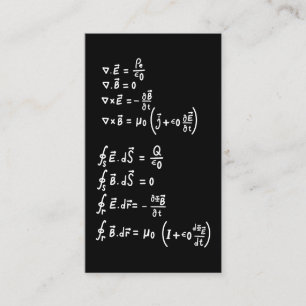 ∇.E⃗ = ρₑ/ϵ0
∇.B⃗ = 0
∇×E⃗ = -∂B⃗/∂t
∇×B⃗ = μ0 (j⃗ + ϵ0 ∂E⃗/∂t)
∮ₛ E⃗.dS⃗ = Q/ϵ0
∮ₛ B⃗.dS⃗ = 0
∮ᵣ E⃗.dr⃗ = -∂Φ_B/∂t
∮ᵣ B⃗.dr⃗ = μ0 (I + ϵ0 dΦ_E/dt)